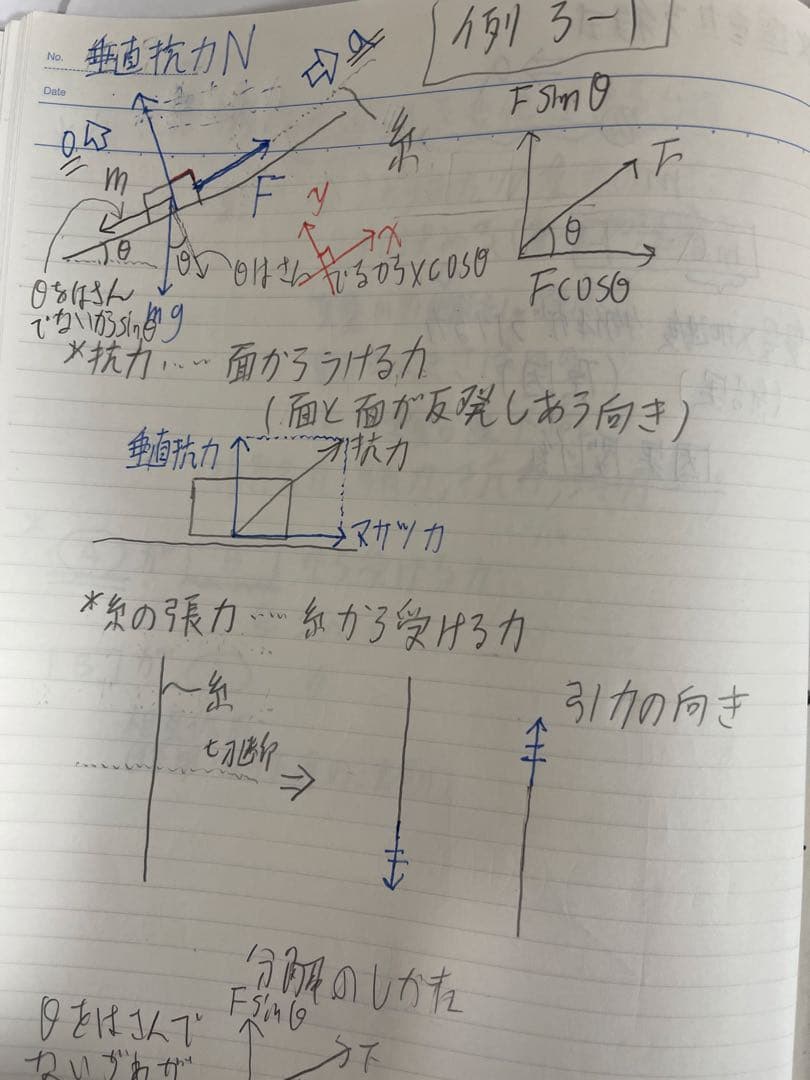 No.
Date
垂直抗力N
a
例3-1
糸
0
m
F
θ
θ
mg
y
x
θをはさん
でないからsinθ
θはさんでるから×cosθ
Fsinθ
F
θ
Fcosθ
*抗力……面からうける力
(面と面が反発しあう向き)
垂直抗力
抗力
マサツ力
*糸の張力……糸から受ける力
糸
切断
⇒
引力の向き
分解のしかた
Fsinθ
F
θをはさんで
ない